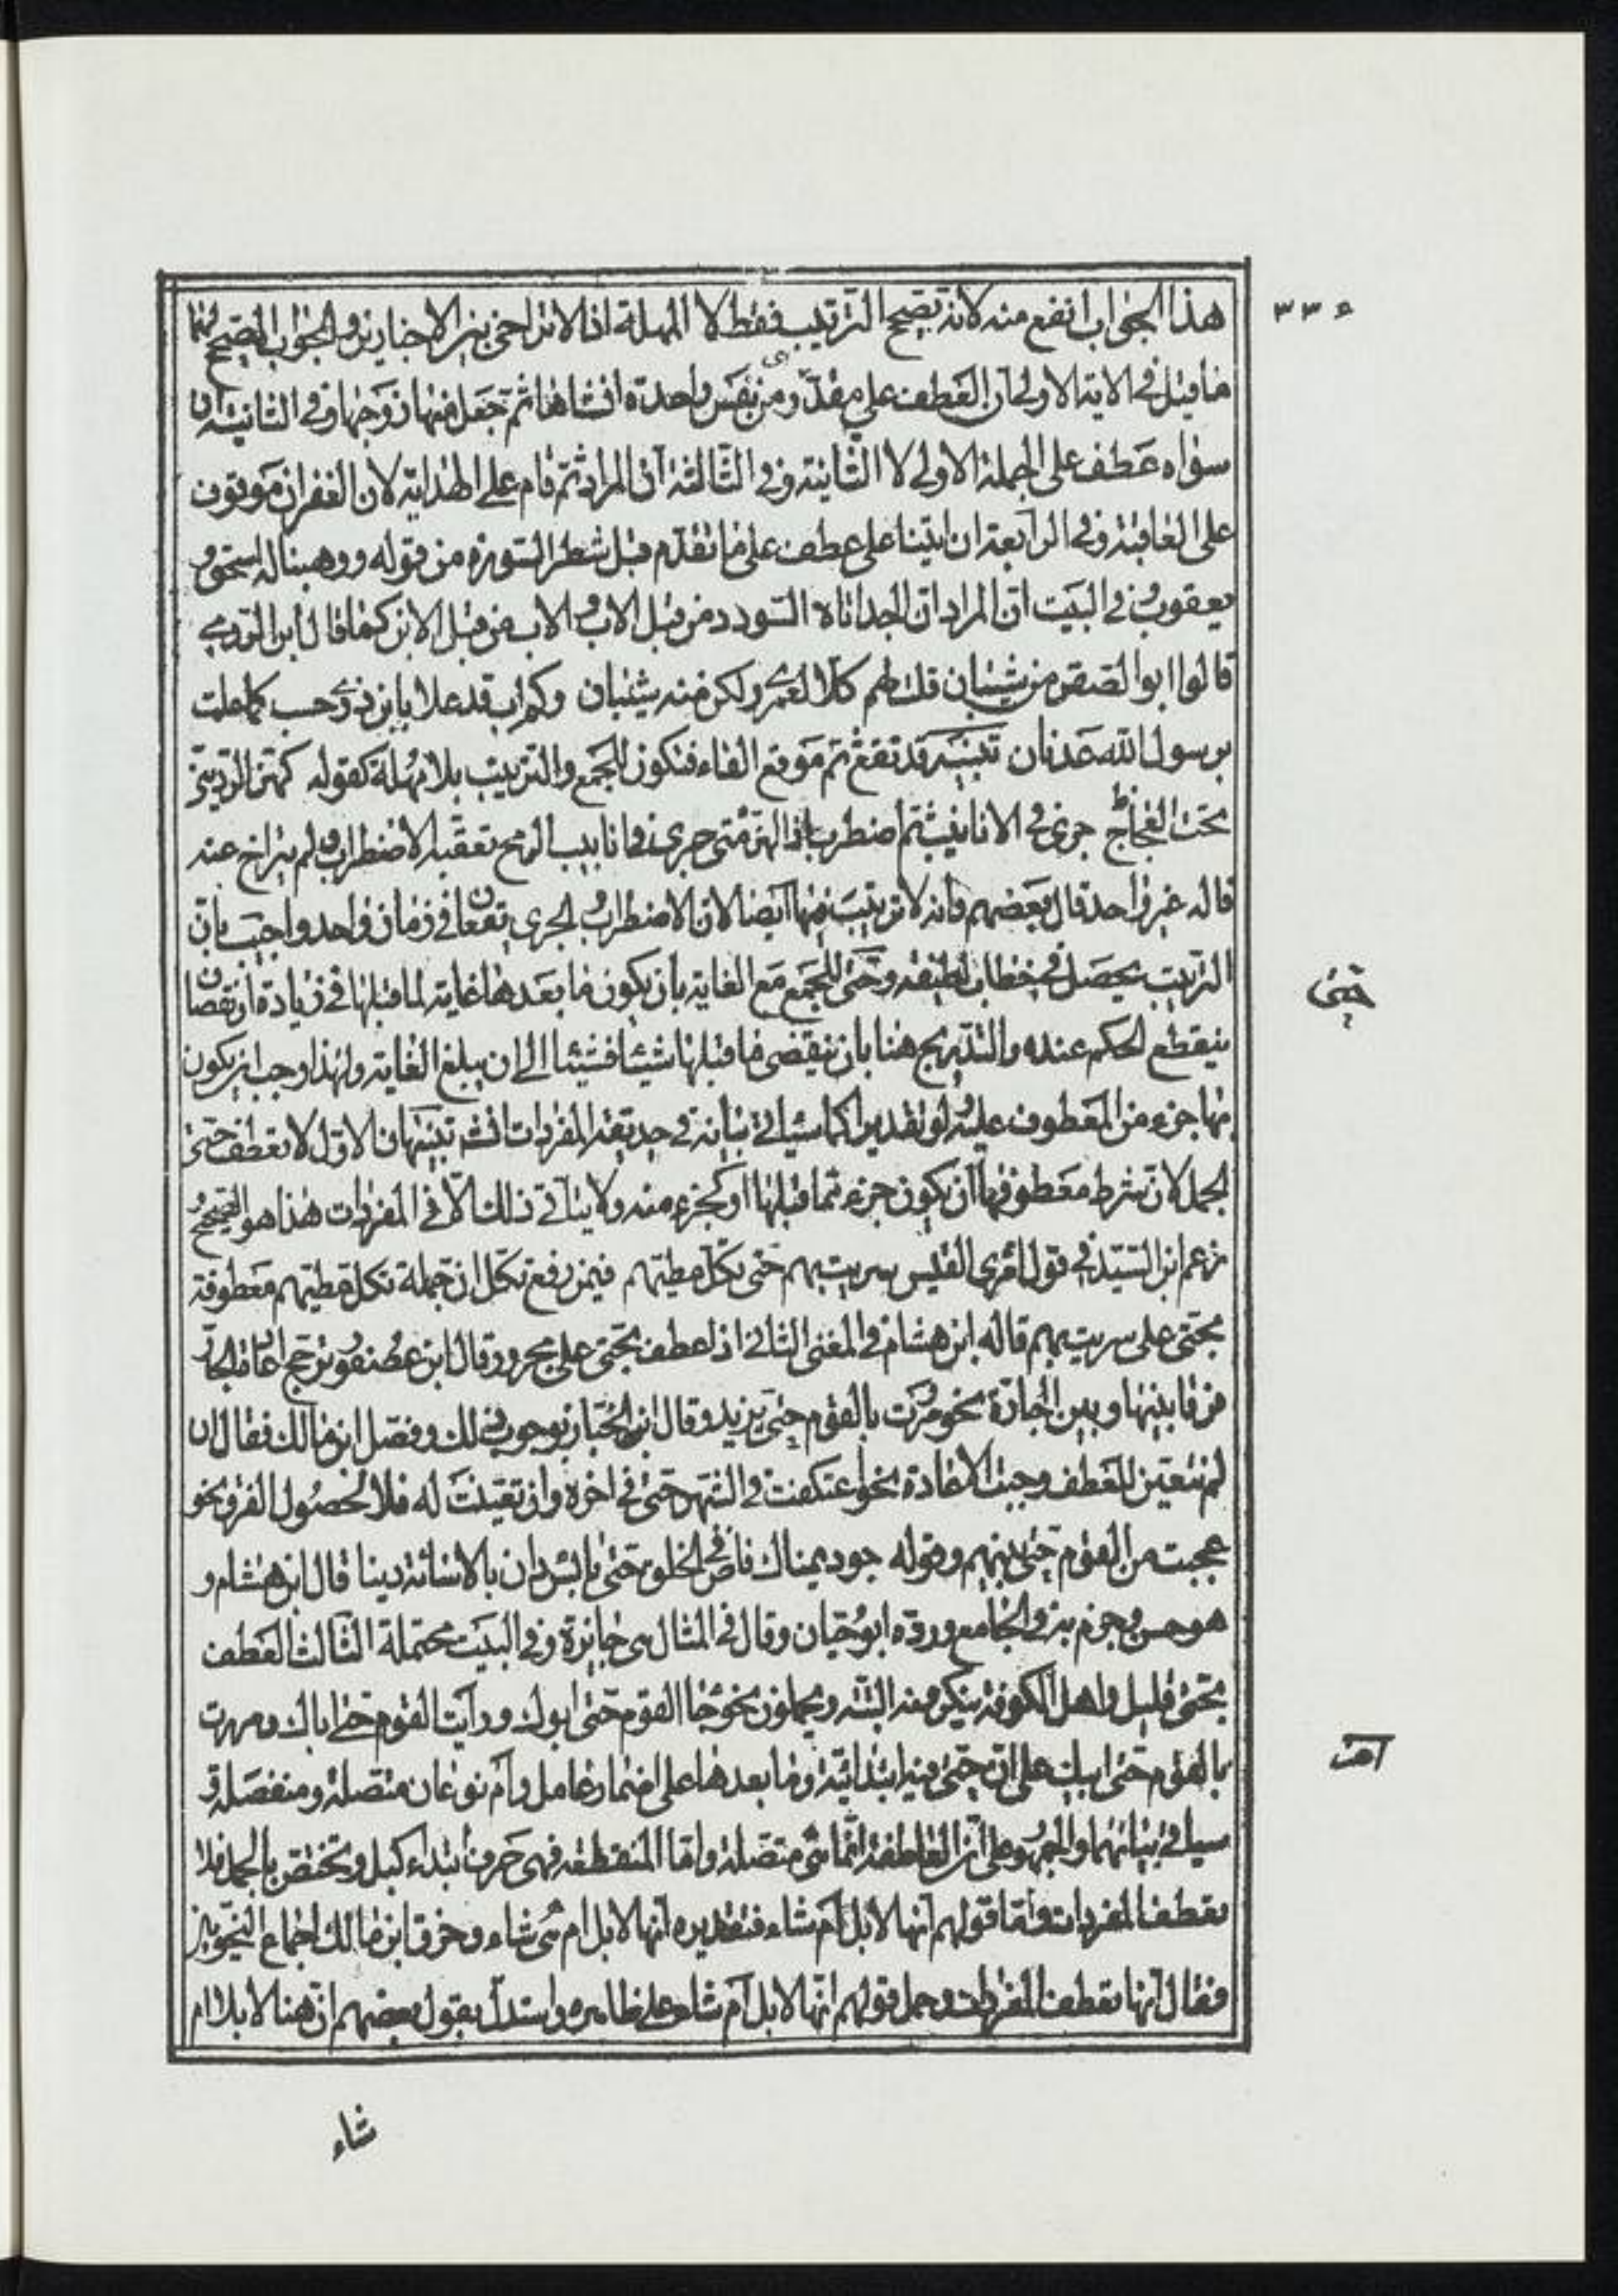 ٣٣٠
هذا الجواب انفع منه لانه يصحح الترتيب فقط لا المهلة اذ لا تراخى بين الاخبارين والجواب الصحيح عنها
ما قيل فى الاية الاولى ان العطف على مقدر ومن نفس واحدة انشاها ثم جعل منها زوجها وفى الثانية ان
سواه عطف على الجملة الاولى لا الثانية وفى الثالثة ان المراد ثم دام على الهداية لان الغفران موقوف
على العاقبة وفى الرابعة ان اتينا على عطف على ما تقدم قبل شطر السورة من قوله ووهبنا له اسحق و
يعقوب وفى البيت ان المراد ان الجد اتاه السودد من قبل الاب والاب من قبل الابن كما قال ابن الرومى
قالوا ابو الصقر من شيبان قلت لهم كلا لعمرى ولكن منه شيبان وكم اب قد علا بابن ذرى حسب كما علت
برسول الله عدنان تنبيه قد تقع ثم موقع الفاء فتكون للجمع والترتيب بلا مهلة كقوله كهز الردينى
تحت العجاج جرى فى الانابيب ثم اضطرب اذ الهز متى جرى فى انابيب الرمح تعقبه الاضطراب ولم يتراخ عنه
قاله غير واحد قال بعضهم وانه لا ترتيب فيها ايضا لان الاضطراب والجرى يقعان فى زمان واحد واجيب بان
الترتيب يحصل فى خطاب لطيفة وحتى للجمع مع الغاية بان يكون ما بعدها غاية لما قبلها فى زيادة او نقصان
حتى
ينقطع الحكم عنده والتدريج هنا بان ينقضى ما قبلها شيئا فشيئا الى ان يبلغ الغاية ولهذا وجب ان يكون
منها جزء من المعطوف عليه ولو تقديرا كما سياتى بيانه فى حديقة المفردات انشه تنبيهان الاول لا تعطف حتى
الجمل لان شرط معطوفها ان يكون جزء مما قبلها او كجزء منه ولا يتاتى ذلك الا فى المفردات هذا هو الصحيح و
زعم ابن السيد فى قول امرئ القيس سريت بهم حتى تكل مطيهم فيمن رفع تكل ان جملة تكل مطيهم معطوفة
بحتى على سريت بهم قاله ابن هشام فى المغنى الثانى اذا عطف بحتى على مجرور قال ابن عصفور ترجح اعادة الجار
فرقا بينها وبين الجارة نحو مررت بالقوم حتى بزيد وقال ابن الخباز بوجوب ذلك وفصل ابن مالك فقال ان
لم تتعين للعطف وجبت الاعادة نحو اعتكفت فى الشهر حتى فى اخره وان تعينت له فلا لحصول الفرق نحو
عجبت من القوم حتى بنيهم وقوله جود يمناك فاض فى الخلق حتى بائس دان بالاسائة دينا قال ابن هشام و
هو حسن وجزم به فى الجامع ورده ابو حيان وقال فى المثال هى جارة وفى البيت محتملة الثالث العطف
بحتى قليل واهل الكوفة ينكرونه البتة ويحملون نحو جا القوم حتى ابوك ورايت القوم حتى اباك ومررت
بالقوم حتى ابيك على ان حتى فيه ابتدائية وما بعدها على اضمار عامل وام نوعان متصلة ومنفصلة و
ام
سياتى بيانهما والجمهور على ان العاطفة انما هى متصلة واما المنقطعة فهى حرف ابتداء كبل وتختص بالجمل فلا
تعطف المفردات واما قولهم انها لابل ام شاء فتقديره انها لابل ام هى شاء وخرق ابن مالك اجماع النحويين
فقال انها تعطف المفردات وحمل قولهم انها لابل ام شاء على ظاهره واستدل بقول بعضهم ان هنا لابلا ام
شاء